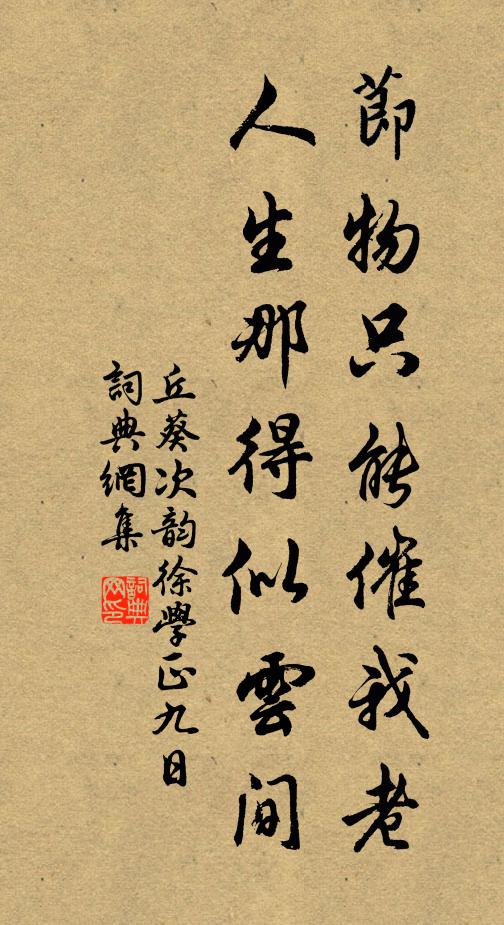 節物只能催我老
人生那得似雲間
丘葵次韵徐學正九日
詞典網集
詞典網印